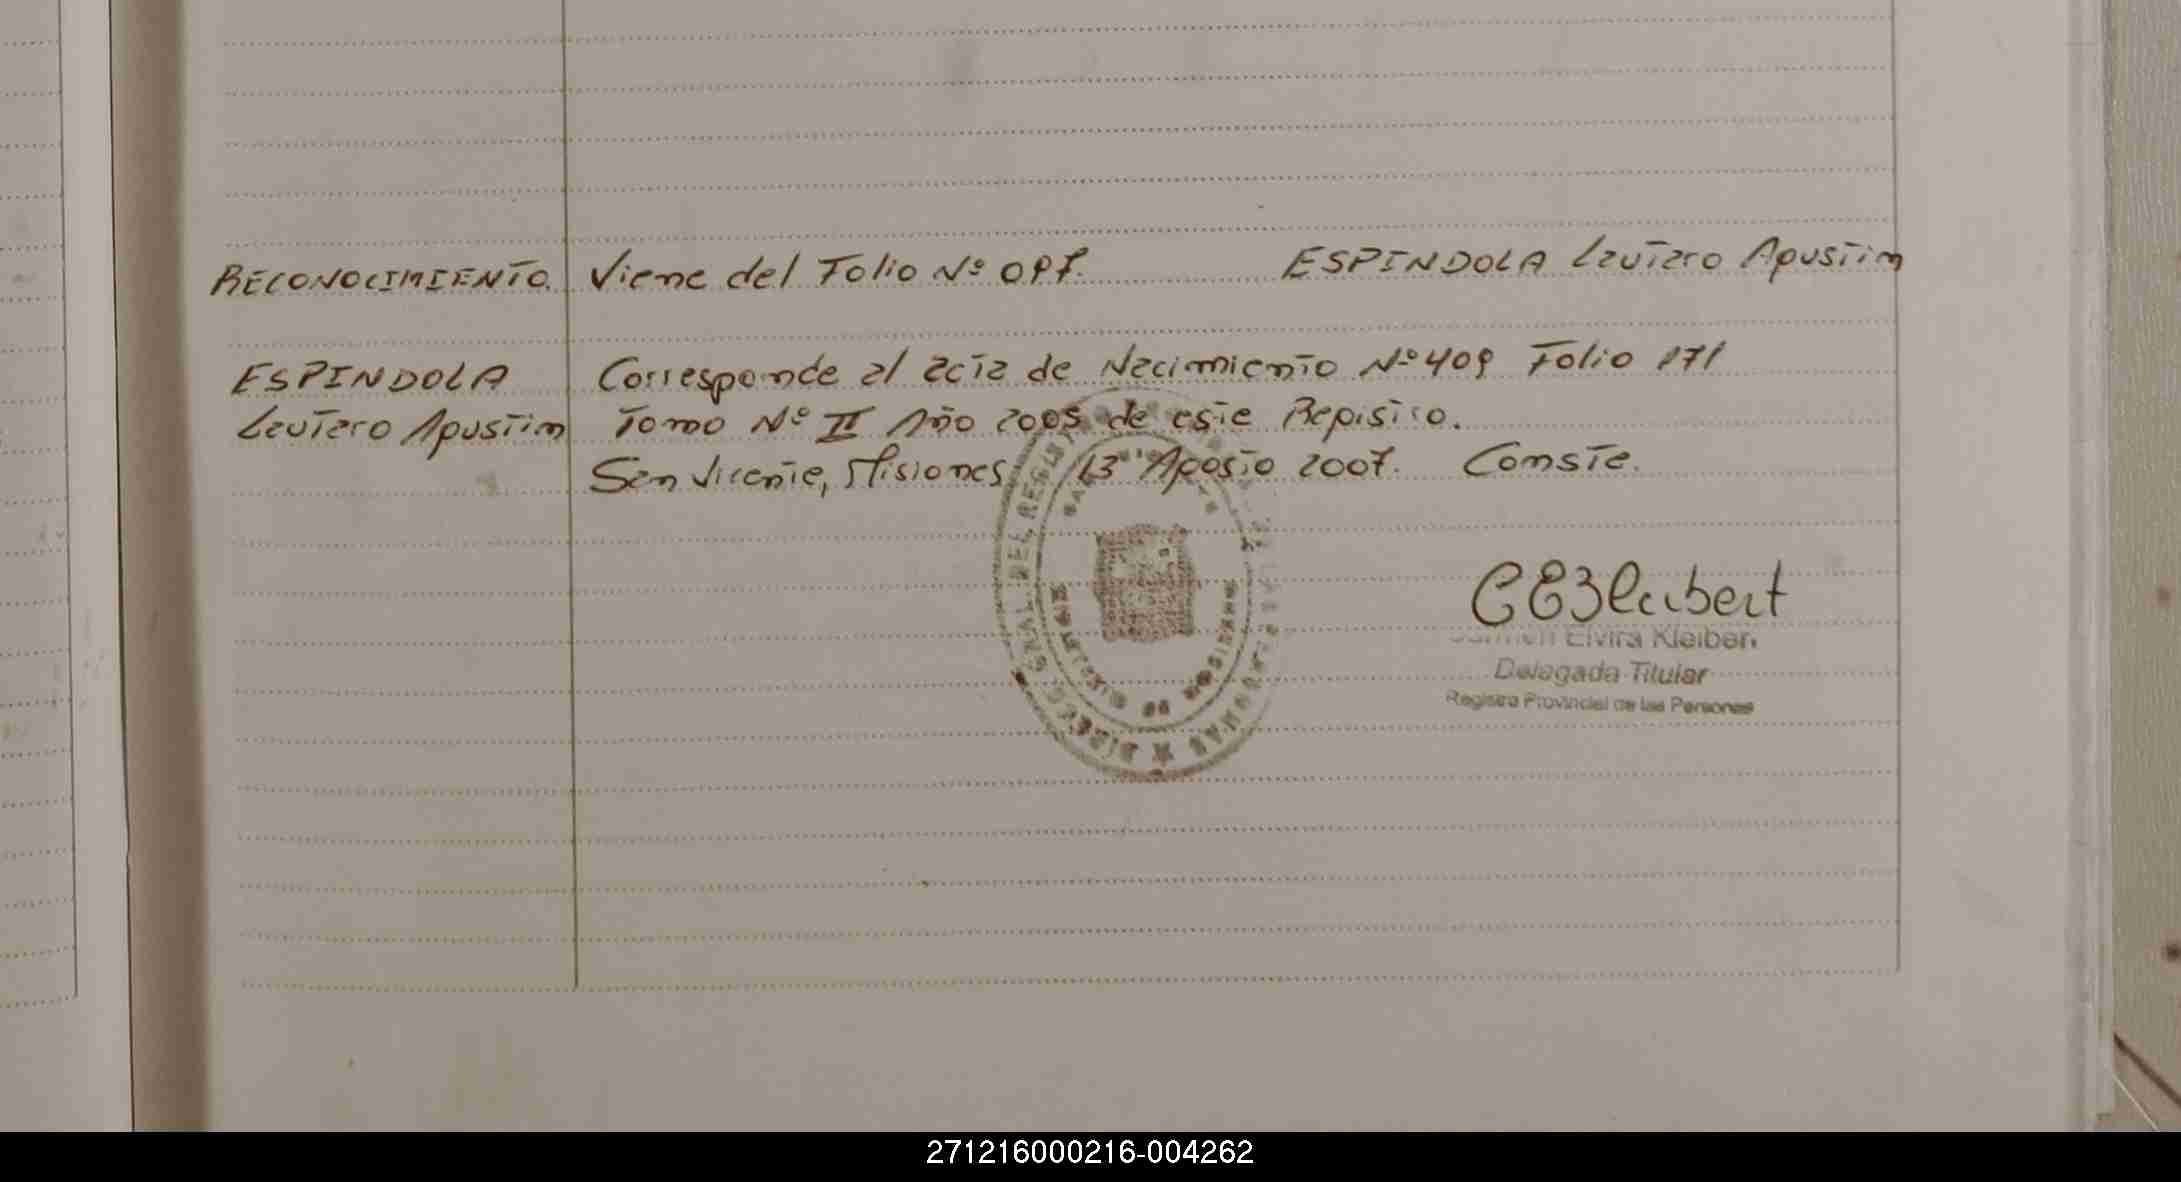 RECONOCIMIENTO. Viene del Folio Nº 097. ESPINDOLA Lautaro Agustin
ESPINDOLA Corresponde al acta de Nacimiento Nº 409 Folio 171
Lautaro Agustin Tomo Nº II Año 2005 de este Registro.
San Vicente, Misiones 13 Agosto 2007. Conste.
Elvira Kleibert
Delegada Titular
Registro Provincial de las Personas
DIRECC. GRAL. DEL REGIST
PERSONAS
MISIONES
271216000216-004262